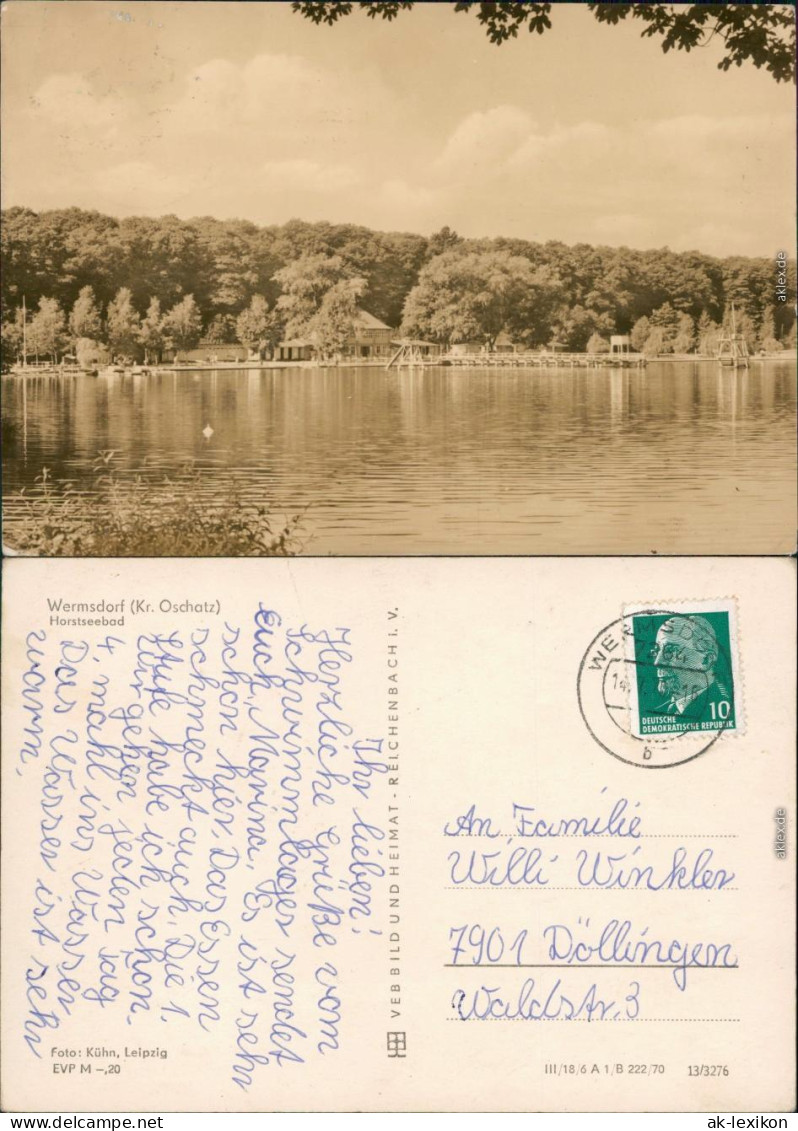 aklex.de
Wermsdorf (Kr. Oschatz)
Horstseebad
Ihr lieben!
Herzliche Grüße vom
Schwimmlager sendet
Euch, Marina. Es ist sehr
schön hier. Das Essen
schmeckt auch. Die 1.
Stufe habe ich schon.
Wir gehen jeden Tag
4. mahl ins Wasser
Das Wasser ist sehr
warm.
Foto: Kühn, Leipzig
EVP M –,20
VEB BILD UND HEIMAT - REICHENBACH i. V.
WERMSDORF
7264
b
10
DEUTSCHE
DEMOKRATISCHE REPUBLIK
An Familie
Willi Winkler
7901 Döllingen
Waldstr. 3
III/18/6 A 1/B 222/70 13/3276
aklex.de
www.ak-lexikon.de
ak-lexikon